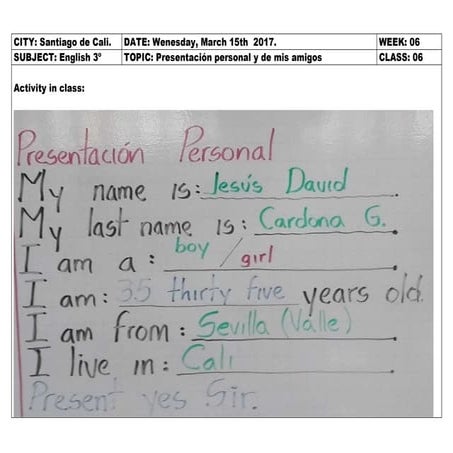 CITY: Santiago de Cali. DATE: Wenesday, March 15th 2017. WEEK: 06
SUBJECT: English 3° TOPIC: Presentación personal y de mis amigos CLASS: 06
Activity in class:
Presentación Personal
My name is: Jesús David.
My last name is: Cardona G.
I am a: boy / girl.
I am: 35 thirty five years old.
I am from: Sevilla (Valle).
I live in: Cali.
Present yes Sir.